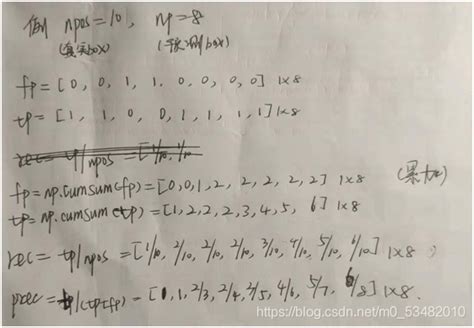 例 npos=10, np=8
(真实box) (预测box)
fp=[0, 0, 1, 1, 0, 0, 0, 0] 1×8
tp=[1, 1, 0, 0, 1, 1, 1, 1] 1×8
rec = tp/npos = [1/10, 1/10
fp=np.cumsum(fp)=[0,0,1,2, 2, 2, 2, 2] 1×8 (累加)
tp=np.cumsum(tp)=[1,2,2,2,3,4,5, 6] 1×8
rec = tp/npos = [1/10, 2/10, 2/10, 2/10, 3/10, 4/10, 5/10, 6/10] 1×8,
prec=tp/(tp+fp) = [1, 1, 2/3, 2/4, 3/5, 4/6, 5/7, 6/8] 1×8.
https://blog.csdn.net/m0_53482010